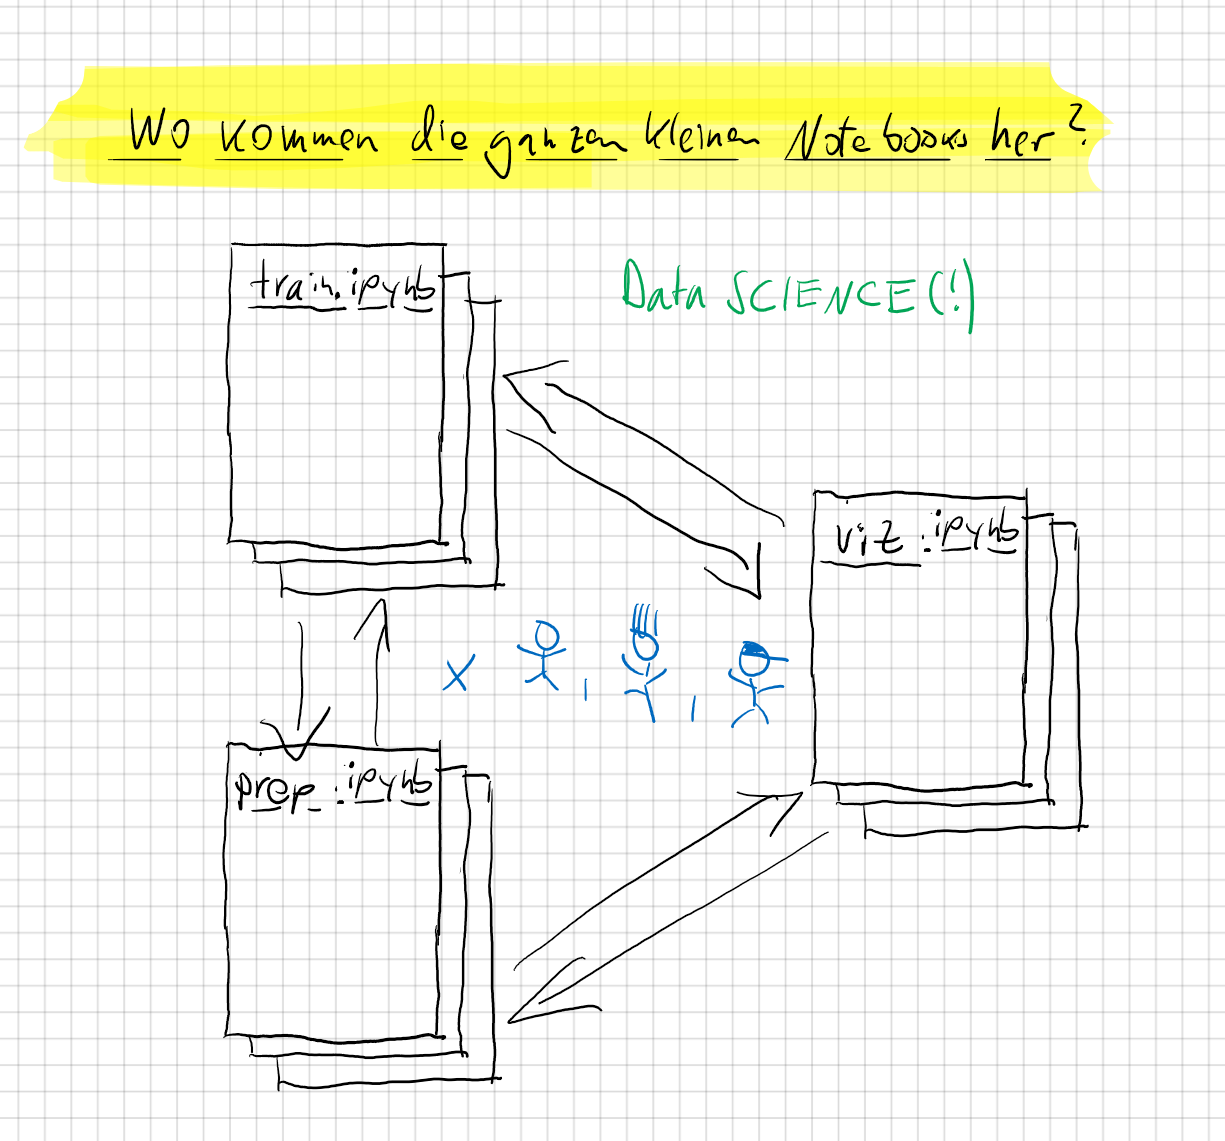 Wo kommen die ganzen kleinen Notebooks her?
train.ipynb
Data SCIENCE(!)
viz.ipynb
x , ,
prep.ipynb